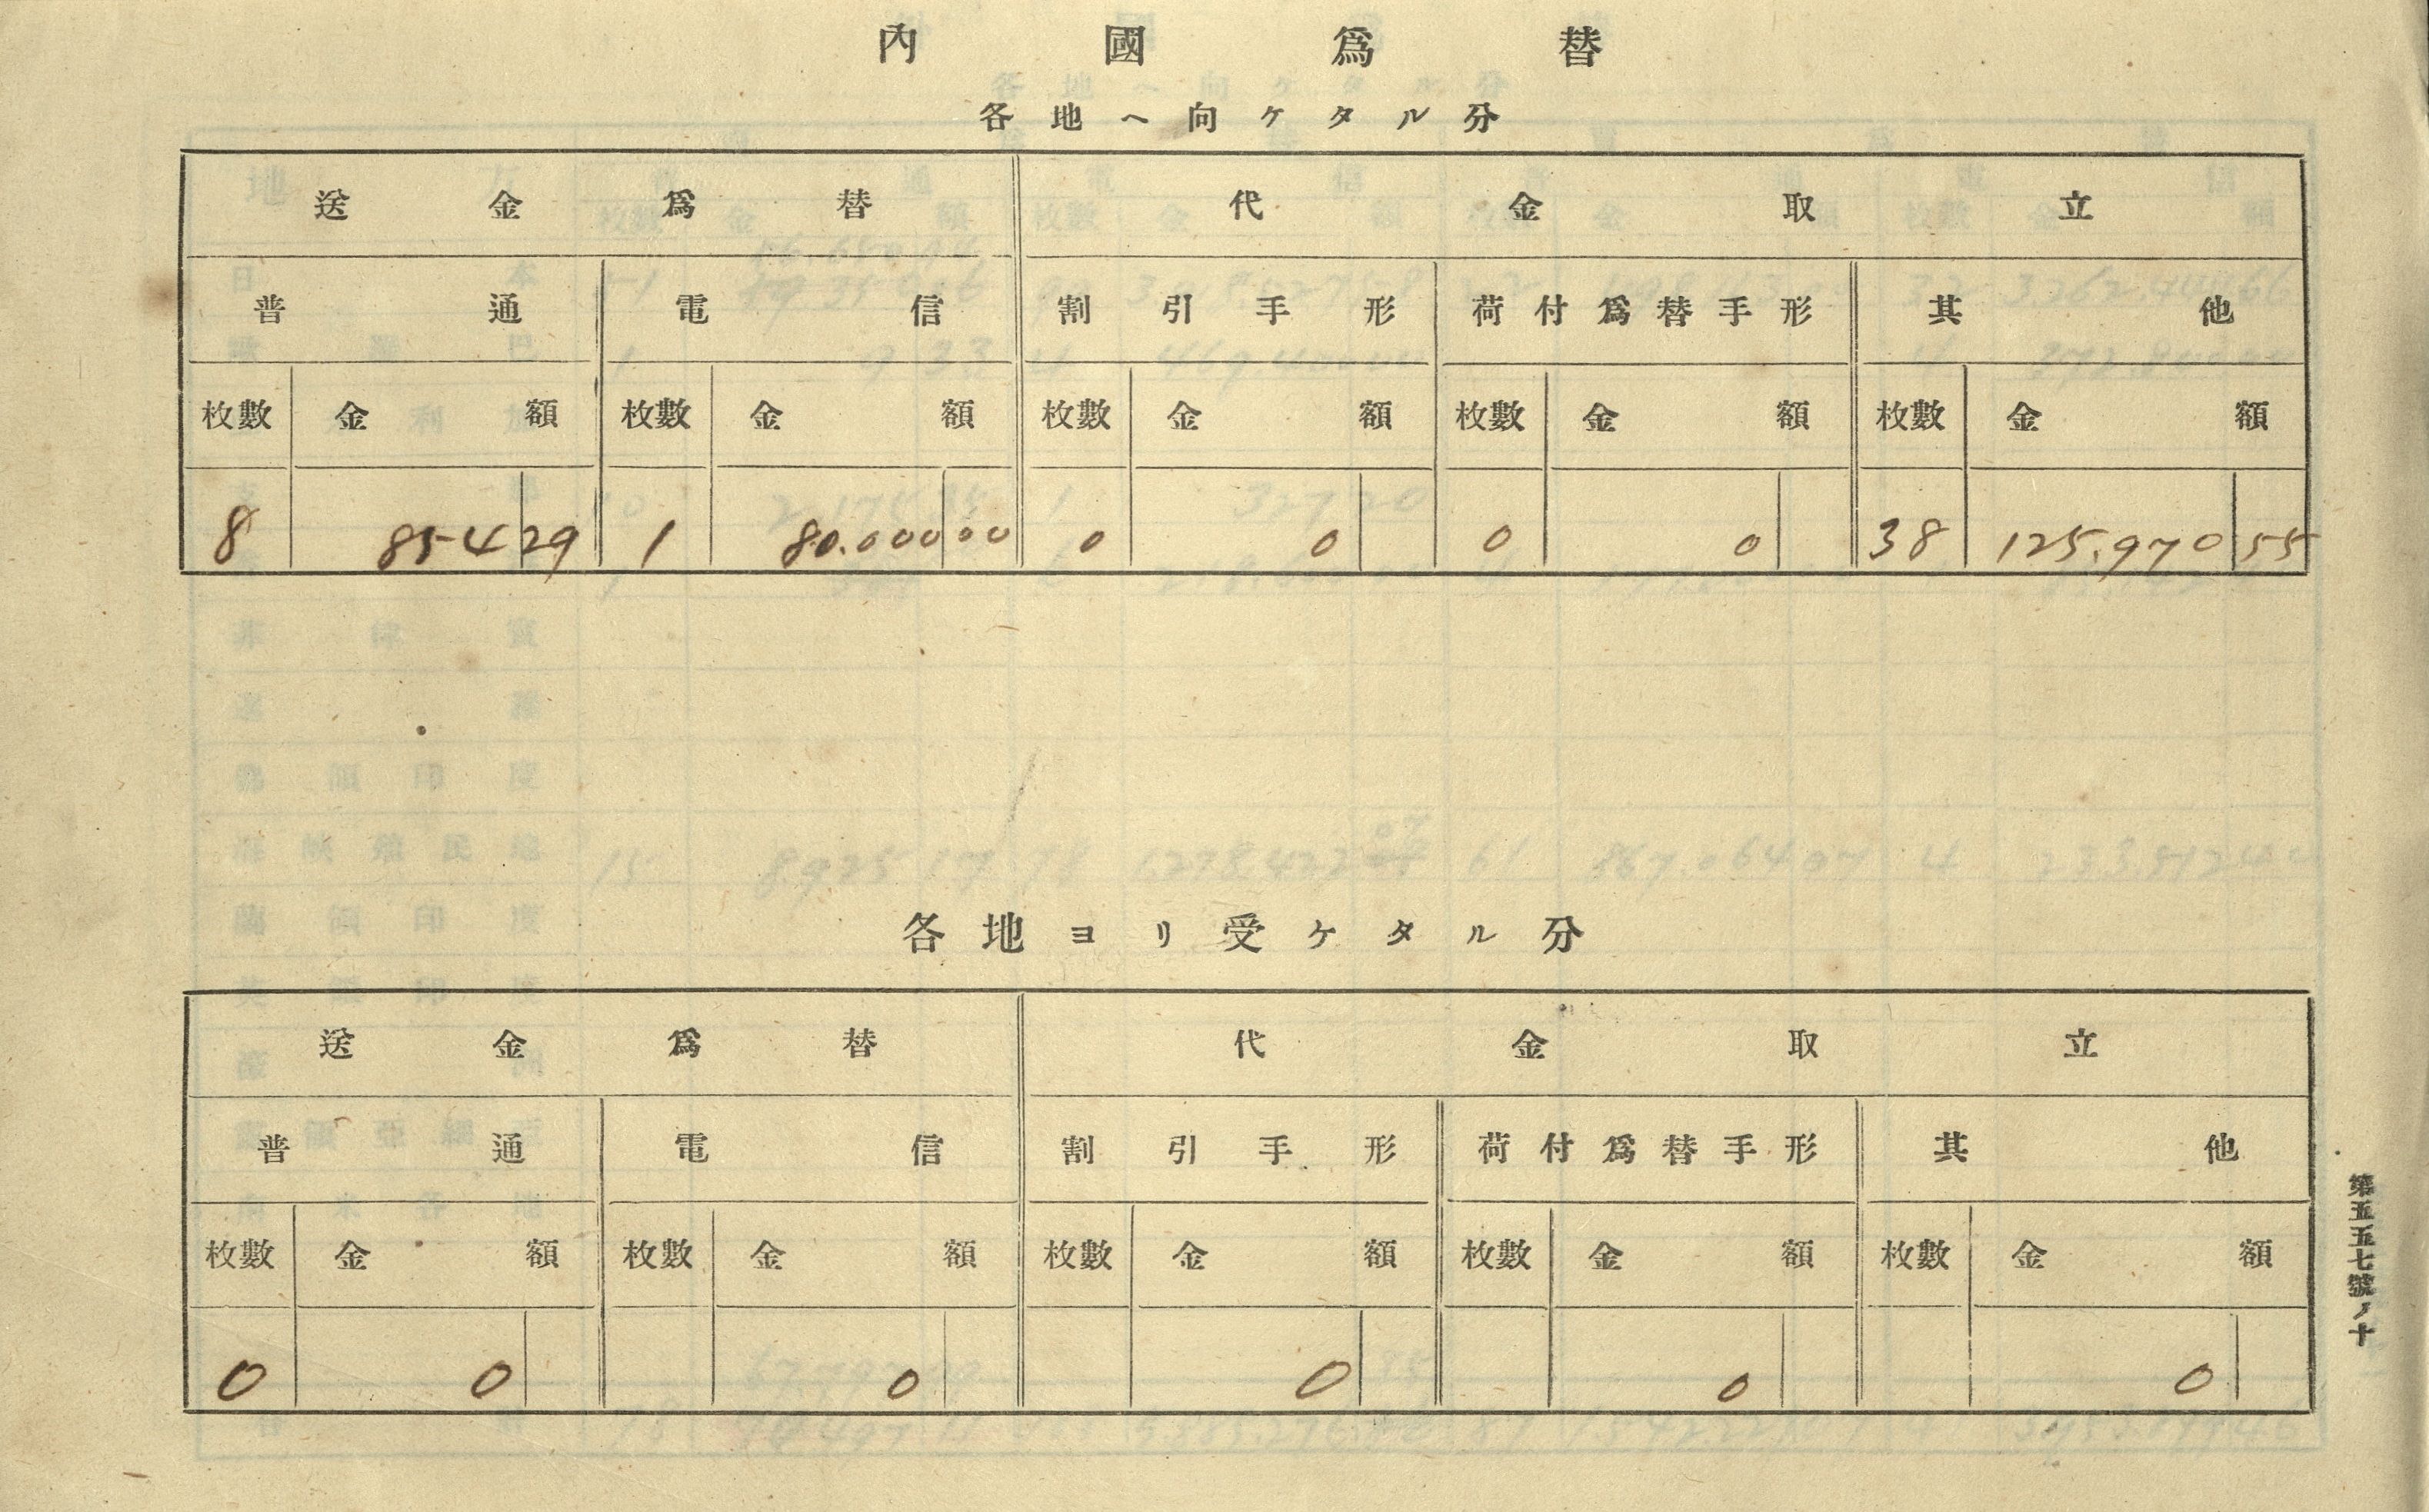 內國爲替
各地ヘ向ケタル分
送金爲替 代金取立
普通 電信 割引手形 荷付爲替手形 其他
枚數 金額 枚數 金額 枚數 金額 枚數 金額 枚數 金額
8 854 29 1 80.000 00 0 0 0 0 38 125.970 55
各地ヨリ受ケタル分
送金爲替 代金取立
普通 電信 割引手形 荷付爲替手形 其他
枚數 金額 枚數 金額 枚數 金額 枚數 金額 枚數 金額
0 0 0 0 0 0
第五五七號ノ十